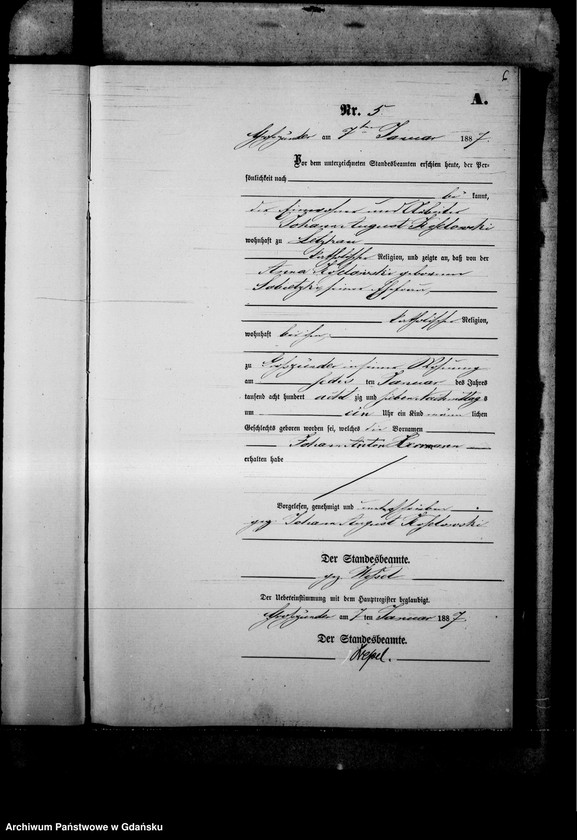 6
A.
Nr. 5
am 7ten Januar 1887.
Vor dem unterzeichneten Standesbeamten erschien heute, der Per-
sönlichkeit nach
be kannt,
der Einwohner und Arbeiter
Johann August
wohnhaft zu Letzkau
katholischer Religion, und zeigte an, daß von der
Anna geborenen
seiner Ehefrau,
katholischer Religion,
wohnhaft bei ihm,
zu in seiner Wohnung
am sechs ten Januar des Jahres
tausend acht hundert acht zig und sieben Nachmittag s
um ein Uhr ein Kind männ lichen
Geschlechts geboren worden sei, welches die Vornamen
Johann Anton Hermann
erhalten habe
Vorgelesen, genehmigt und unterschrieben
gez. Johann August
Der Standesbeamte.
gez. Wessel
Der Uebereinstimmung mit dem Hauptregister beglaubigt.
am 7 ten Januar 1887
Der Standesbeamte.
Wessel.
Archiwum Państwowe w Gdańsku